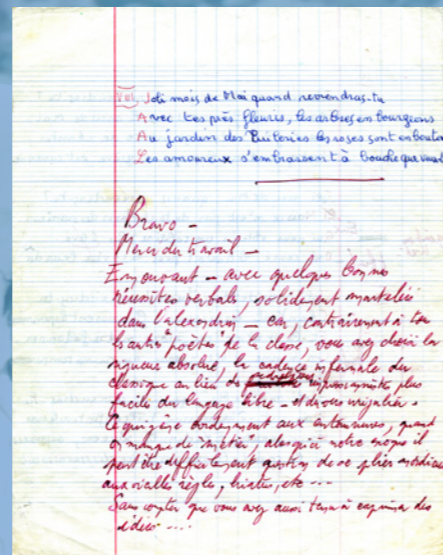 VIII Joli mois de Mai quand reviendras-tu
Avec tes prés fleuris, tes arbres en bourgeons
Au jardin des Tuileries les roses sont en bouton
Les amoureux s'embrassent à bouche que veux
Bravo -
Merci du travail -
Emouvant - avec quelques bonnes
réussites verbales, solidement martelées
dans l'alexandrin - car, contrairement à tous
les autres poètes de la classe, vous avez choisi la
rigueur absolue, la cadence infernale du
classique au lieu des impressionnites plus
faciles du langage libre - et du vers irrégulier -
ce qui gène bordement aux entournures, quand
on manque de "métier", alors qu'à notre époque il
peut être difficilement question de se plier
aux vieilles règles, hiatus, etc ...
Sans compter que vous avez aussi tenu à exprimer des
idées ....